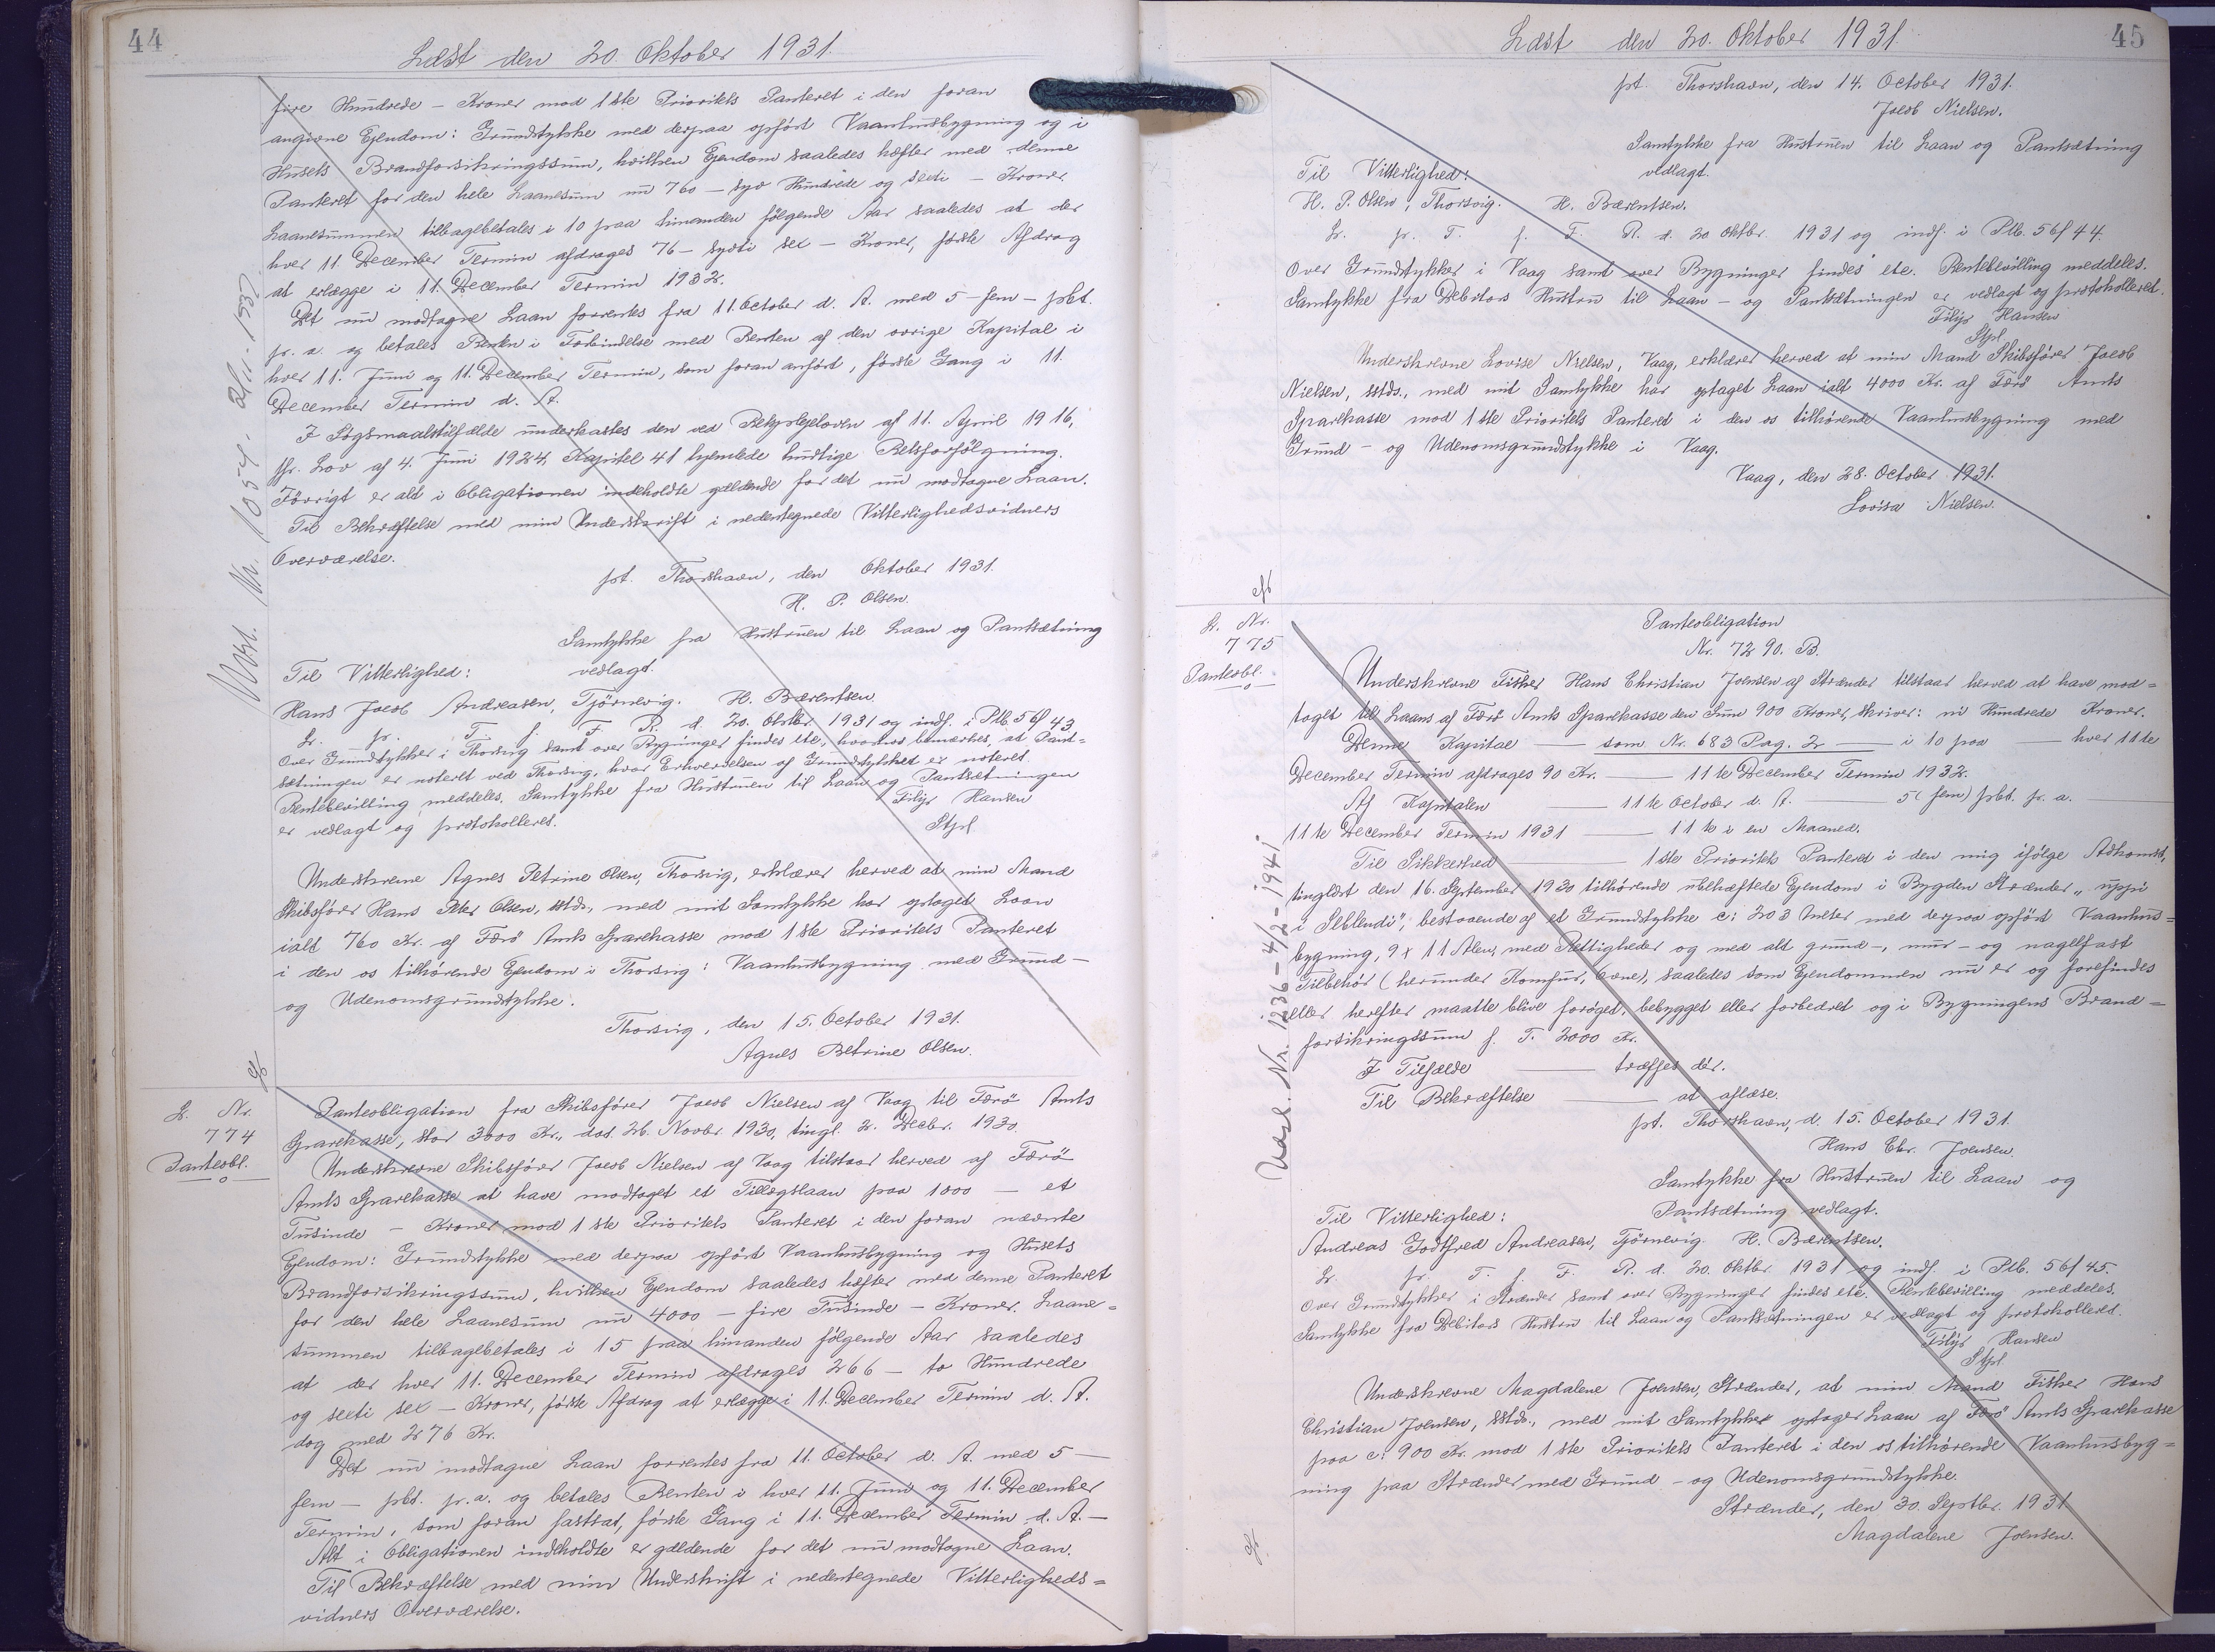 44
Læst den 20. Oktober 1931.
fire Hundrede - Kroner mod 1ste Prioritets Panteret i den foran
angivne Ejendom: Grundstykke med derpaa opført Vaanhusbygning og i
Husets Brandforsikringssum, hvilken Ejendom saaledes hæfter med denne
Panteret for den hele Laanesum nu 760 - syv Hundrede og sexti - Kroner.
Laanesummen tilbagebetales i 10 paa hinanden følgende Aar saaledes at der
hver 11. December Termin afdrages 76 - syvti sex - Kroner, første Afdrag
at erlægge i 11. December Termin 1932.
Det nu modtagne Laan forrentes fra 11. October d. A. med 5 - fem - pbt.
pr. a. og betales Renten i Forbindelse med Renten af den øvrige Kapital i
hver 11. Juni og 11. December Termin, som foran anført, første Gang i 11.
December Termin d. A.
I Søgsmaalstilfælde underkastes den ved Retsplejeloven af 11. April 1916,
jfr. Lov af 4. Juni 1924, Kapitel 41 hjemlede hurtige Retsforfølgning.
Förrigt er alt i Obligationen indeholdte gældende for det nu modtagne Laan.
Til Bekræftelse med min Underskrift i nedentegnede Vitterlighedsvidners
Overværelse.
pt. Thorshavn, den Oktober 1931.
H. P. Olsen.
Samtykke fra Hustruen til Laan og Pantsætning
Til Vitterlighed: vedlagt.
Hans Jacob Andreasen, Tjörnevig. H. Bærentsen.
Lr. pr. T. f. F. R. d. 20. Oktbr. 1931 og indf. i Plb. 56/43
Over Grundstykker i Thorsvig samt over Bygninger findes etc., hvorhos bemærkes, at Pant=
sætningen er noteret ved Thorsvig, hvor Erhvervelsen af Grundstykket er noteret.
Rentebevilling meddeles. Samtykke fra Hustruen til Laan og Pantsætningen
er vedlagt og protokolleret. Filip Hansen
Stpl.
Underskrevne Agnes Petrine Olsen, Thorsvig, erklærer herved at min Mand
Skibsfører Hans Peter Olsen, sstds., med mit Samtykke har optaget Laan
ialt 760 Kr. af Færö Amts Sparekasse mod 1ste Prioritets Panteret
i den os tilhørende Ejendom i Thorsvig: Vaanhusbygning med Grund-
og Udenomsgrundstykke.
Thorsvig, den 15. October 1931.
Agnes Petrine Olsen.
L. Nr.
774
Panteobl.
Panteobligation fra Skibsfører Jacob Nielsen af Vaag til Færö Amts
Sparekasse, stor 3000 Kr., dat. 26. Novbr. 1930, tingl. 2. Decbr. 1930.
Underskrevne Skibsfører Jacob Nielsen af Vaag tilstaar herved af Færö
Amts Sparekasse at have modtaget et Tillægslaan paa 1000 - et
Tusinde - Kroner mod 1ste Prioritets Panteret i den foran nævnte
Ejendom: Grundstykke med derpaa opført Vaanhusbygning og Husets
Brandforsikringssum, hvilken Ejendom saaledes hæfter med denne Panteret
for den hele Laanesum nu 4000 - fire Tusinde - Kroner. Laane=
summen tilbagebetales i 15 paa hinanden følgende Aar saaledes
at der hver 11. December Termin afdrages 266 - to Hundrede
og sexti sex - Kroner, første Afdrag at erlægge i 11. December Termin d. A.
dog med 276 Kr.
Det nu modtagne Laan forrentes fra 11. October d. A. med 5 -
fem - pbt. pr. a. og betales Renten i hver 11. Juni og 11. December
Termin, som foran fastsat, første Gang i 11. December Termin d. A. -
Alt i Obligationen indeholdte er gældende for det nu modtagne Laan.
Til Bekræftelse med min Underskrift i nedentegnede Vitterligheds=
vidners Overværelse.
45
Læst den 20. Oktober 1931.
pt. Thorshavn, den 14. October 1931.
Jacob Nielsen.
Samtykke fra Hustruen til Laan og Pantsætning
Til Vitterlighed: vedlagt.
H. P. Olsen, Thorsvig. H. Bærentsen.
Lr. pr. T. f. F. R. d. 20 Oktbr. 1931 og indf. i Plb. 56/44.
Over Grundstykker i Vaag samt over Bygninger findes etc. Rentebevilling meddeles.
Samtykke fra Debitors Hustru til Laan - og Pantsætningen er vedlagt og protokolleret.
Filip Hansen
Stpl.
Underskrevne Lovise Nielsen, Vaag, erklærer herved at min Mand Skibsfører Jacob
Nielsen, sstds., med mit Samtykke har optaget Laan ialt 4000 Kr. af Færö Amts
Sparekasse mod 1ste Prioritets Panteret i den os tilhørende Vaanhusbygning med
Grund - og Udenomsgrundstykke i Vaag.
Vaag, den 28. October 1931.
Lovisa Nielsen.
L. Nr.
775
Panteobl.
Panteobligation
Nr. 7290. B.
Underskrevne Fisker Hans Christian Joensen af Strænder tilstaar herved at have mod=
taget til Laans af Færö Amts Sparekasse den Sum 900 Kroner, skriver: ni Hundrede Kroner.
Denne Kapital — som Nr. 683 Pag. 2 — i 10 paa — hver 11te
December Termin afdrages 90 Kr. — 11te December Termin 1932.
Af Kapitalen — 11te October d. A. — 5 (fem) pbt. pr. a.
11te December Termin 1931 — 11te i en Maaned.
Til Sikkerhed — 1ste Prioritets Panteret i den mig ifølge Adkomst,
tinglæst den 16. September 1930 tilhørende ubehæftede Ejendom i Bygden Strænder "uppi
i Sletlendi", bestaaende af et Grundstykke c: 203 meter med derpaa opført Vaanhus=
bygning, 9 x 11 Alen, med Rettigheder og med alt grund-, mur- og nagelfast
Tilbehør (herunder Komfur, Ovne), saaledes som Ejendommen nu er og forefindes
eller herefter maatte blive forøget, bebygget eller forbedret og i Bygningens Brand=
forsikringssum f. T. 2000 Kr.
I Tilfælde — træffes dér.
Til Bekræftelse — at aflæse.
pt. Thorshavn, d. 15. October 1931.
Hans Chr. Joensen.
Samtykke fra Hustruen til Laan og
Til Vitterlighed: Pantsætning vedlagt.
Andreas Godtfred Andreasen, Tjörnevig. H. Bærentsen.
Lr. pr. T. f. F. R. d. 20. Oktbr. 1931 og indf. i Plb. 56/45.
Over Grundstykker i Strænder samt over Bygninger findes etc. Rentebevilling meddeles.
Samtykke fra Debitors Hustru til Laan og Pantsætningen er vedlagt og protokolleret.
Filip Hansen
Stpl.
Underskrevne Magdalene Joensen, Strænder, at min Mand Fisker Hans
Christian Joensen, sstds., med mit Samtykke optager Laan af Færö Amts Sparekasse
paa c: 900 Kr. mod 1ste Prioritets Panteret i den os tilhørende Vaanhusbyg=
ning paa Strænder med Grund - og Udenomsgrundstykke.
Strænder, den 30. Septbr. 1931
Magdalene Joensen.